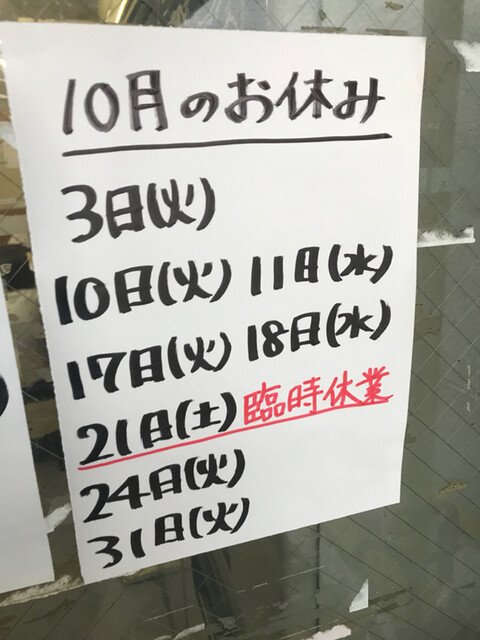 10月のお休み
3日(火)
10日(火) 11日(水)
17日(火) 18日(水)
21日(土)臨時休業
24日(火)
31日(火)